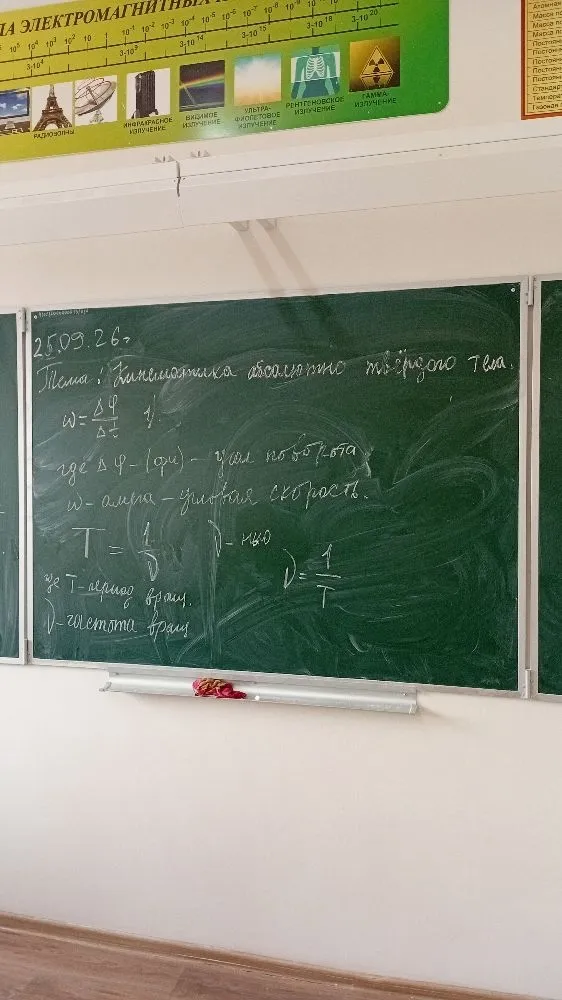 ЛА ЭЛЕКТРОМАГНИТНЫХ
10⁵ 10⁴ 10³ 10² 10 1 10⁻¹ 10⁻² 10⁻³ 10⁻⁴ 10⁻⁵ 10⁻⁶ 10⁻⁷ 10⁻⁸ 10⁻⁹ 10⁻¹⁰ 10⁻¹¹ 10⁻¹²
3·10⁹ 3·10¹⁴ 3·10¹⁶ 3·10¹⁸ 3·10²⁰
РАДИОВОЛНЫ
ИНФРАКРАСНОЕ ИЗЛУЧЕНИЕ
ВИДИМОЕ ИЗЛУЧЕНИЕ
УЛЬТРА-ФИОЛЕТОВОЕ ИЗЛУЧЕНИЕ
РЕНТГЕНОВСКОЕ ИЗЛУЧЕНИЕ
ГАММА-ИЗЛУЧЕНИЕ
Атомная
Масса
Масса
Масса
Постоян
Постоян
Постоян
Постоян
Стандарт
Темпера
Главная
25.09.26г
Тема: Кинематика абсолютно твёрдого тела.
ω = Δφ/Δt
где Δφ - (фи) - угол поворота
ω - омега - угловая скорость.
T = 1/ν ν - ню
где T - период вращ. ν = 1/T
ν - частота вращ